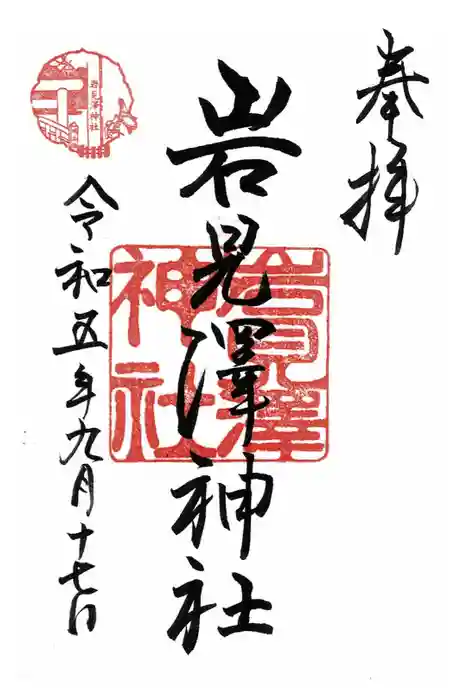 奉拝
岩見澤神社
岩見澤神社
令和五年九月十七日
岩見澤神社